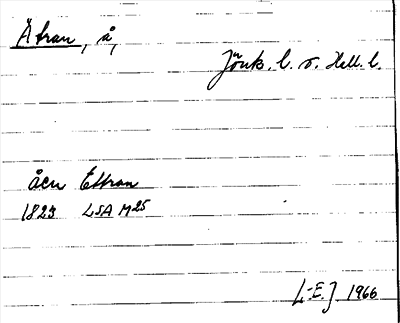 Ätran, å,
Jönk. l. o. Hall. l.
åen Ettran
1823 LSA M25
L-E.J. 1966